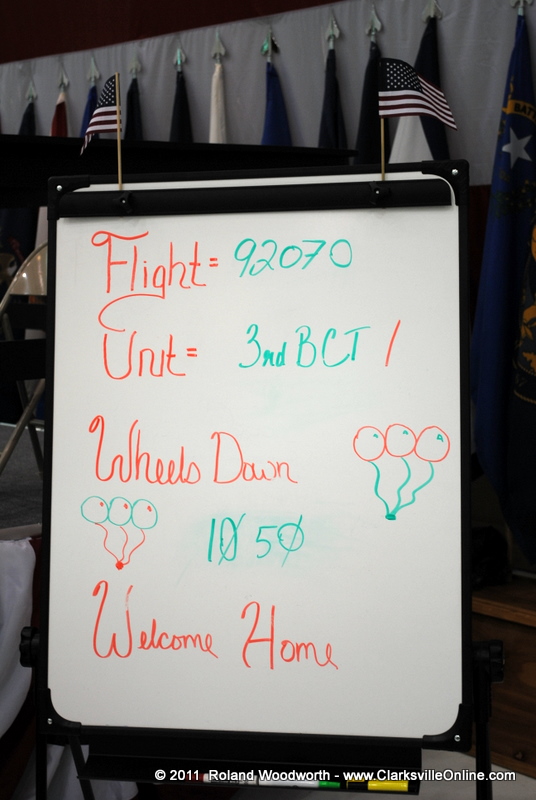 Flight= 92070
Unit= 3rd BCT /
Wheels Down
1050
Welcome Home
© 2011 Roland Woodworth - www.ClarksvilleOnline.com